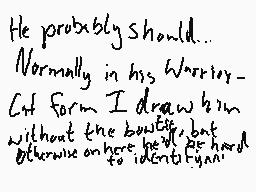 He probably should...
Normally in his Warrior-
Cat form I draw him
without the bowtie, but
otherwise on here, he'd be hard
to identify!!!